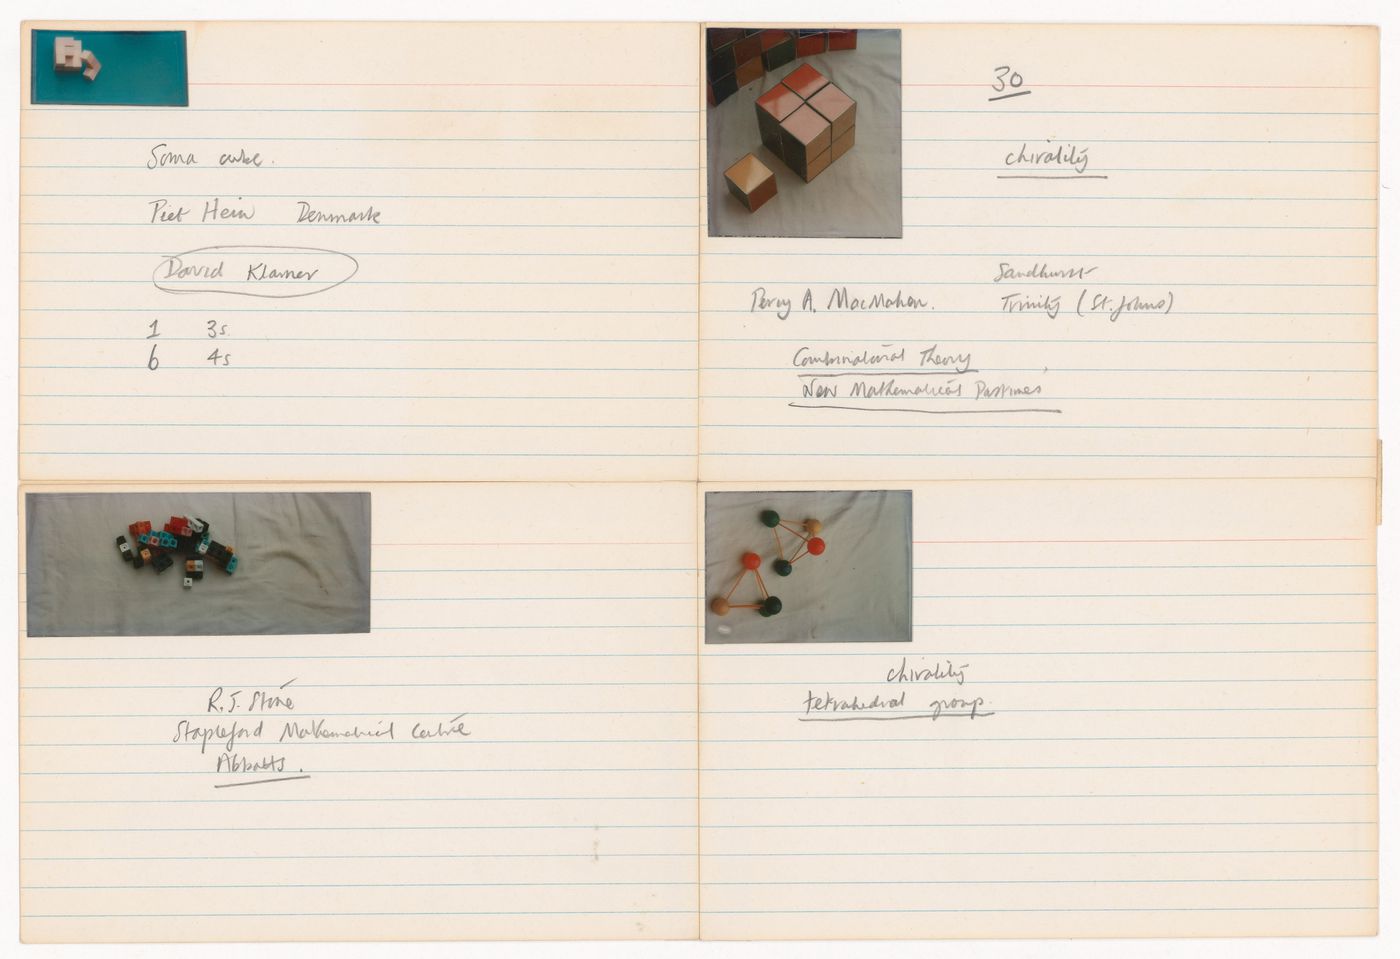 Soma cube.
Piet Hein Denmark
David Klarner
1 3s
6 4s
30
chirality
Sandhurst
Percy A. MacMahon. Trinity (St. Johns)
Combinatorial Theory,
New Mathematical Pastimes
R. J. Stone
Stapleford Mathematical Centre
Abbotts.
chirality
tetrahedral group.